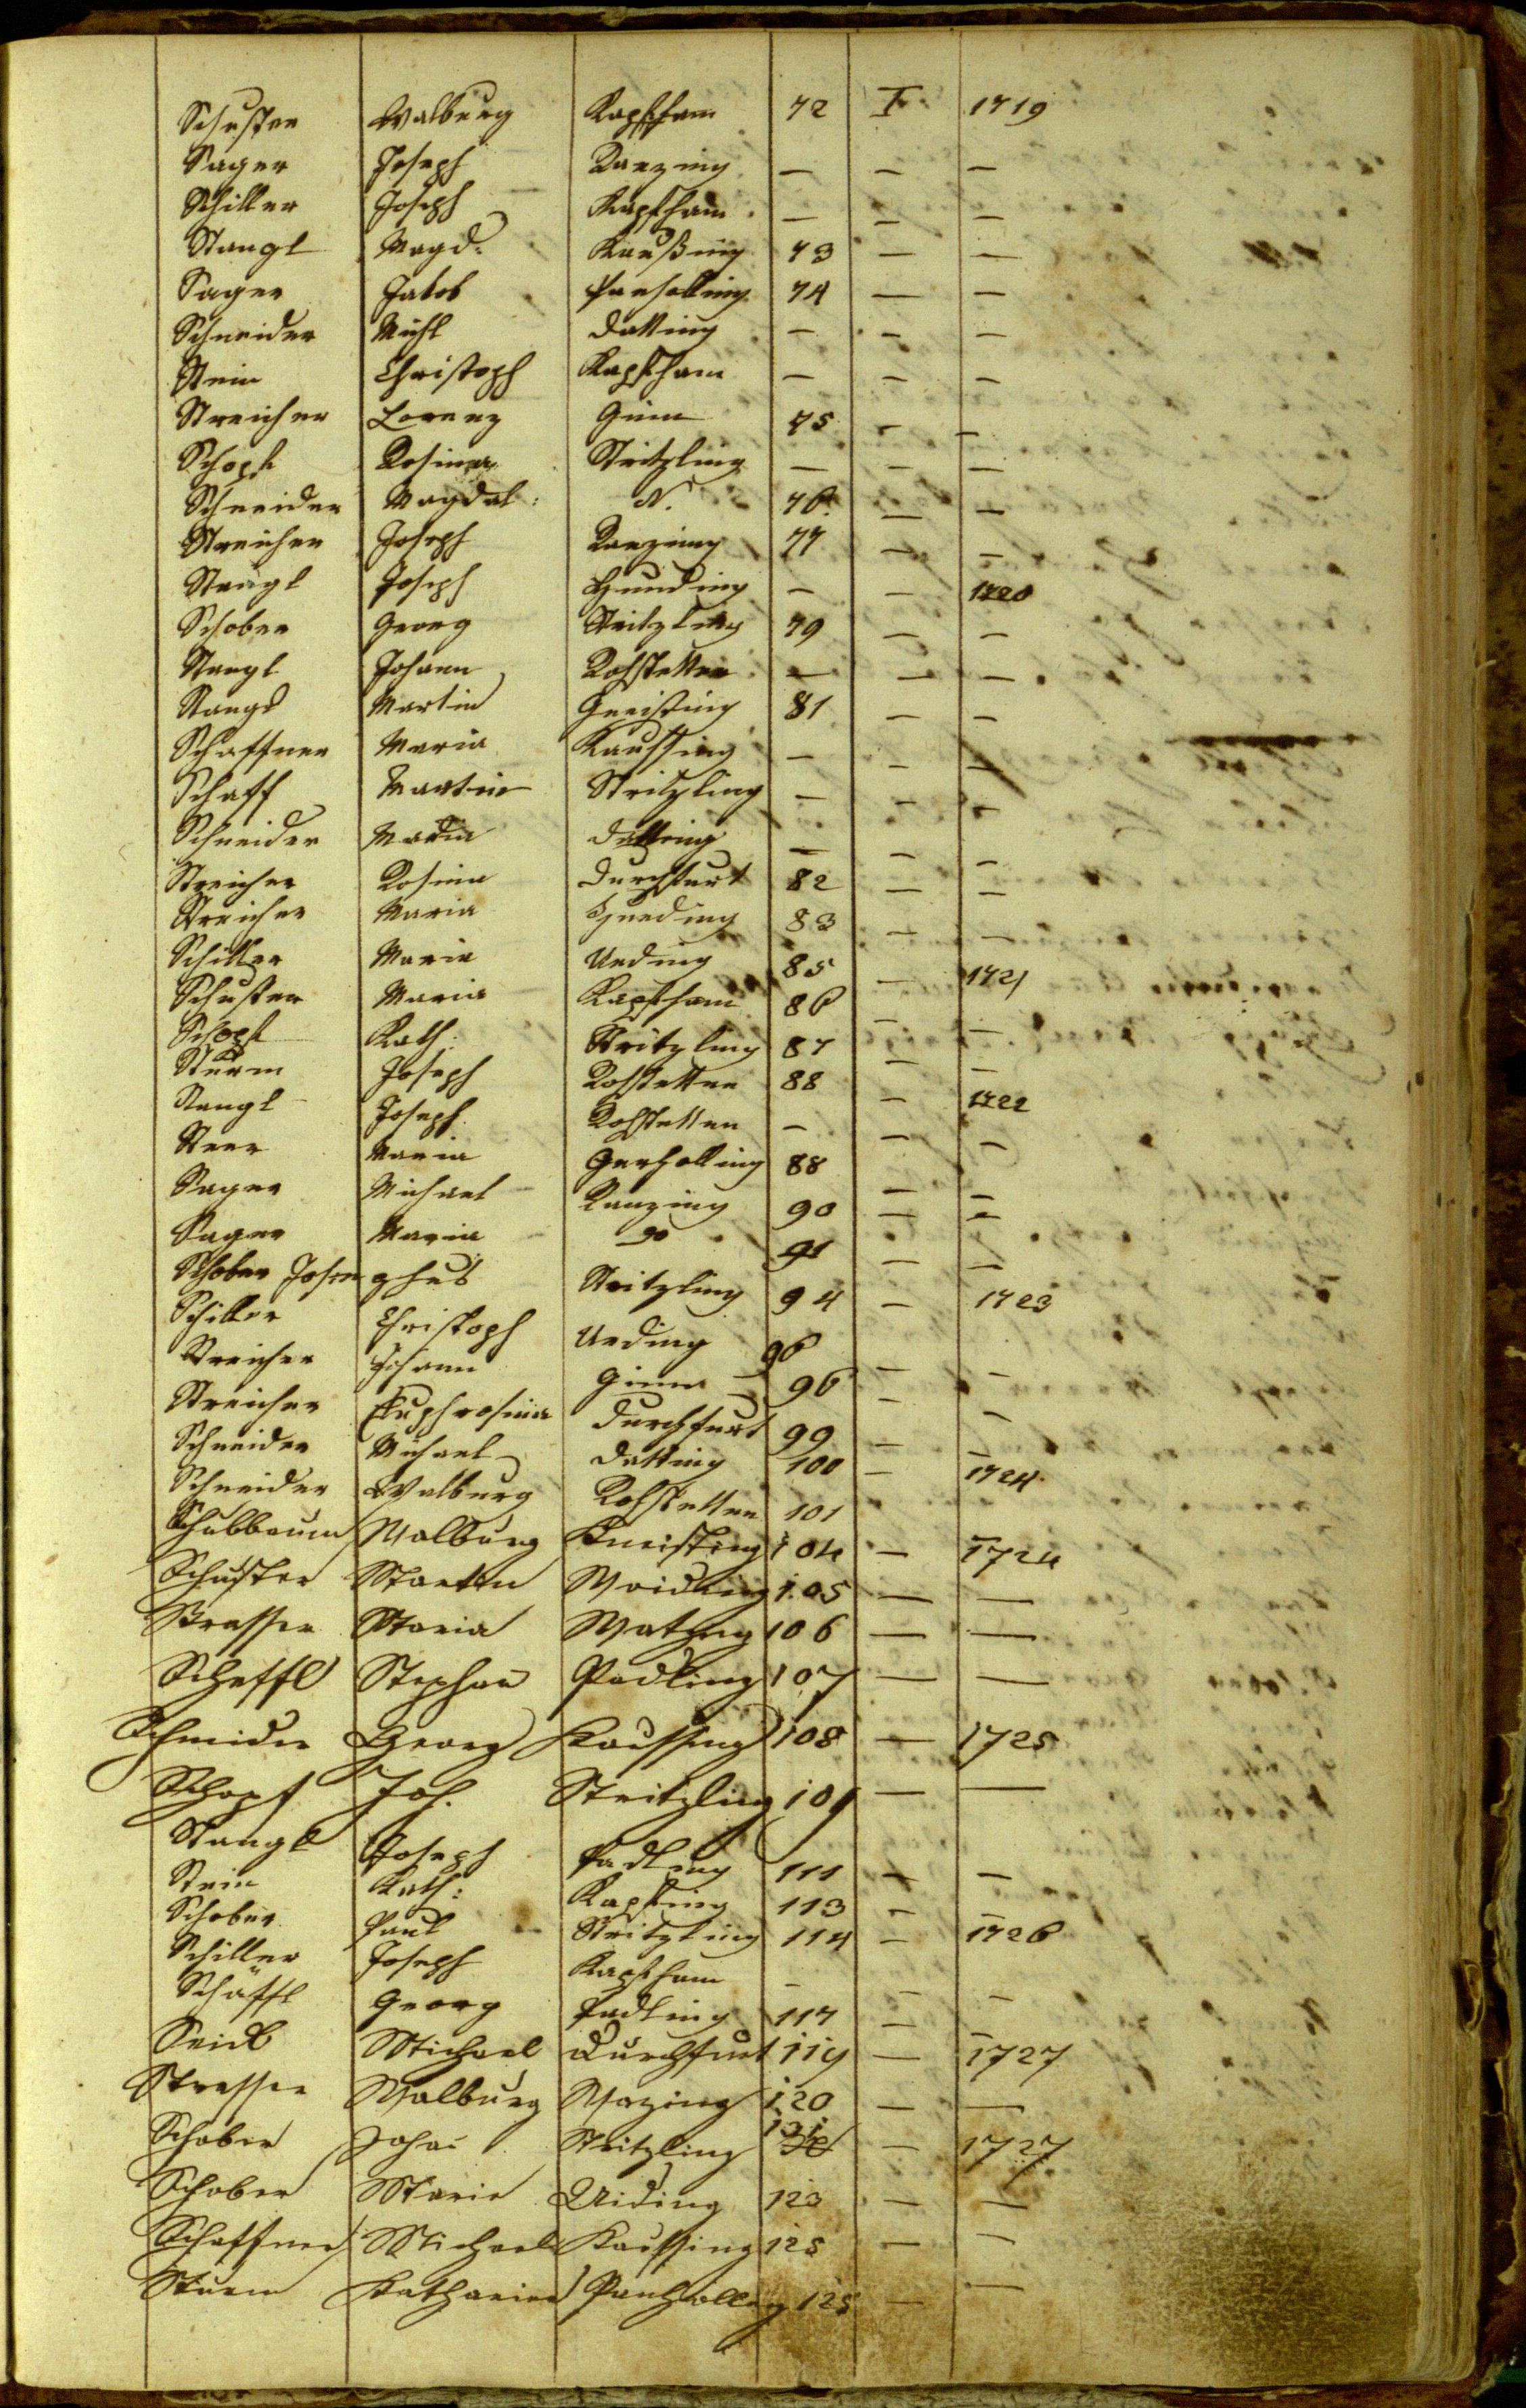 Schuster Walburg Kapfham 72 I 1719
Sager Joseph Ranzing — — —
Schiller Joseph Kapfham — — —
Stangl Magd: Kaußing 73 — —
Sager Jakob Panholling 74 — —
Schneider Michl Datting — — —
Stein Christoph Kapfham — — —
Streicher Lorenz Ginn 75 — —
Schopf Rosina Stritzling — — —
Schneider Magdal: N. 76 — —
Streicher Joseph Ranzing 77 — —
Stangl Joseph Hunding — — 1720
Schober Georg Stritzling 79 — —
Stangl Johann Rohstetten — — —
Stangl Martin Gneisting 81 — —
Schaffner Maria Kaussing — — —
Schaff Martin Stritzling — — —
Schneider Maria Datting — — —
Streicher Rosina Durchfurt 82 — —
Streicher Maria Hunding 83 — —
Schiller Maria Unding 85 — 1721
Schuster Maria Kapfham 86 — —
Schopf Kath: Stritzling 87 — —
Sturm Joseph Rohstetten 88 — 1722
Stangl Joseph Rohstetten — — —
Maria Gerholling 88 — —
Sager Michael Ranzing 90 — —
Sager Maria do 91 — —
Schober Josephus Stritzling 94 — 1723
Schiller Christoph Unding 96 — —
Streicher Johann Ginn 96 — —
Streicher Euphrosina Durchfurt 99 — —
Schneider Michael Datting 100 — 1724
Schneider Walburg Rohstetten 101 —
Schubbaum Walburg Gneisting 104 — 1724
Schuster Martin Waiding 105 — —
Strasser Maria 106 — —
Scheffl Stephan Padling 107 — —
Schneider Georg Kaussing 108 — 1725
Schopf Joh. Stritzling 109 — —
Stangl Joseph Padling 111 — —
Stein Kath: Kapfing 113 — —
Schober Paul Stritzling 114 — 1726
Schiller Joseph Kapfham — — —
Schäffl Georg Padling 117 — —
Seidl Michael Durchfurt 119 — 1727
Strasser Walburg 120 — —
Schober Johan Stritzling 121 — 1727
Schober Maria Uiding 123 — —
Schaffner Michael Kaussing 125 — —
Sturm Katharina Panholling 125 — —